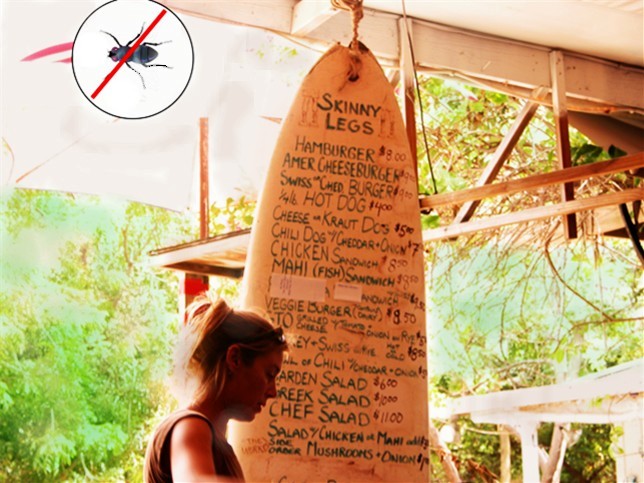 SKINNY
LEGS
HAMBURGER $8.00
AMER CHEESEBURGER
SWISS OR CHED. BURGER
1/4 lb HOT DOG $4.00
CHEESE OR KRAUT DOG $5.00
CHILI DOG W/CHEDDAR + ONION $7
CHICKEN SANDWICH $8.50
MAHI (FISH) SANDWICH $8.50
ANDWICH
VEGGIE BURGER $8.50
GRILLED CHEESE W/ TOMATO + ONION ON RYE
EY + SWISS ON RYE $8.50
OF CHILI W/CHEDDAR + ONION
ARDEN SALAD $6.00
REEK SALAD $10.00
CHEF SALAD $11.00
SALAD W/CHICKEN OR MAHI
SIDE ORDER MUSHROOMS + ONION